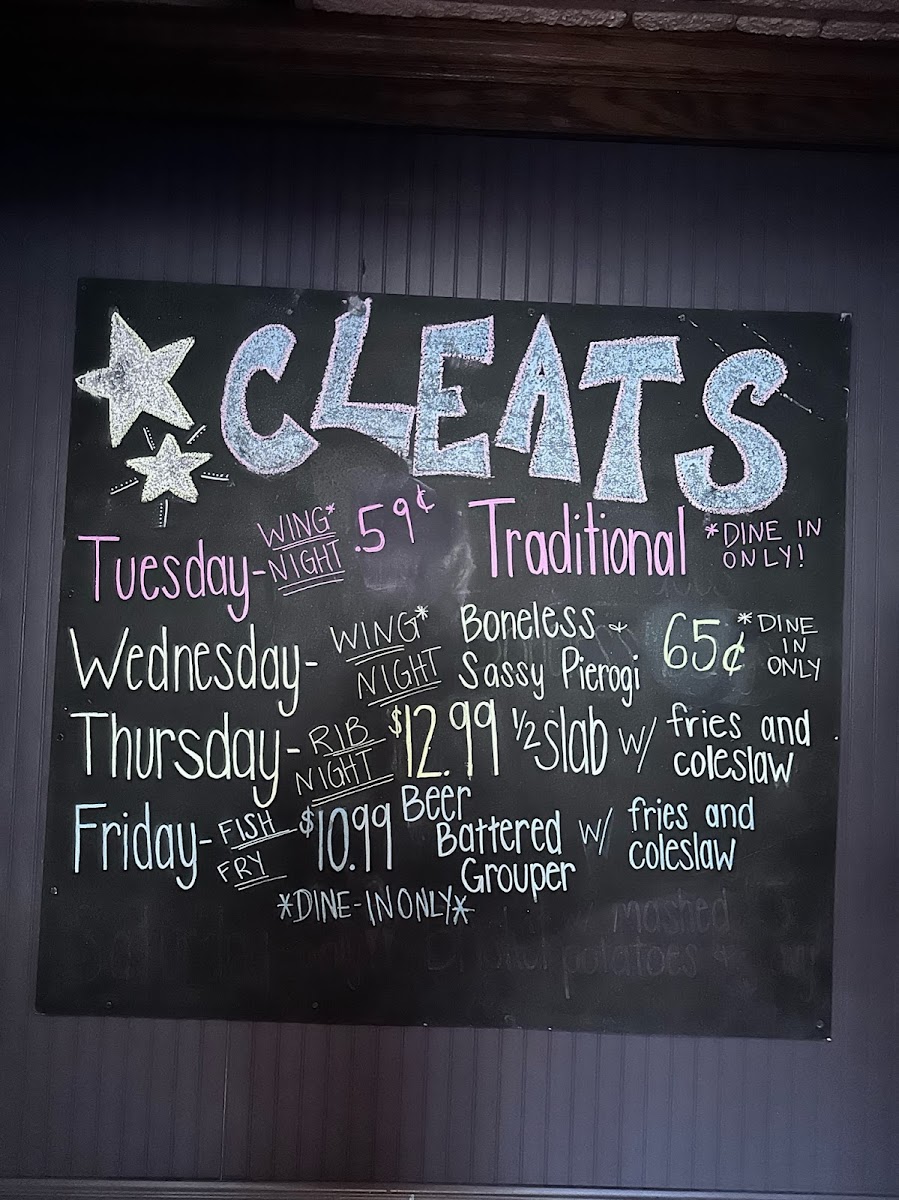 CLEATS
Tuesday- WING* NIGHT .59¢ Traditional *DINE IN ONLY!
Wednesday- WING* NIGHT Boneless & Sassy Pierogi 65¢ *DINE IN ONLY
Thursday- RIB NIGHT $12.99 1/2 slab w/ fries and coleslaw
Friday- FISH FRY $10.99 Beer Battered Grouper w/ fries and coleslaw
*DINE-IN ONLY*
mashed
potatoes